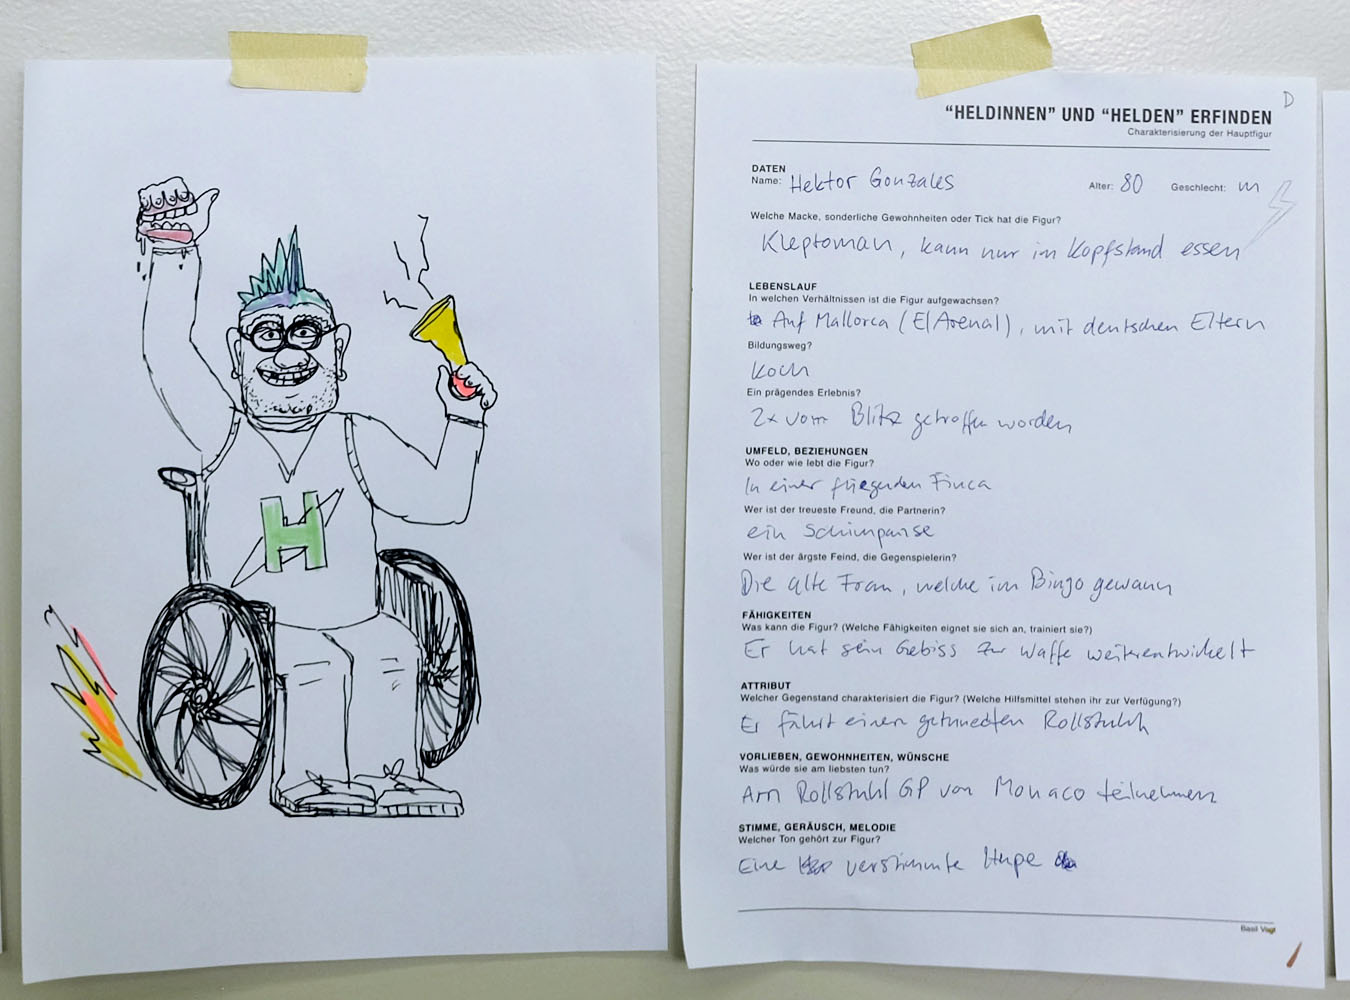 H
D
"HELDINNEN" UND "HELDEN" ERFINDEN
Charakterisierung der Hauptfigur
DATEN
Name: Hektor Gonzales Alter: 80 Geschlecht: m
Welche Macke, sonderliche Gewohnheiten oder Tick hat die Figur?
Kleptoman, kann nur im Kopfstand essen
LEBENSLAUF
In welchen Verhältnissen ist die Figur aufgewachsen?
Auf Mallorca (El Arenal), mit deutschen Eltern
Bildungsweg?
Koch
Ein prägendes Erlebnis?
2x vom Blitz getroffen worden
UMFELD, BEZIEHUNGEN
Wo oder wie lebt die Figur?
In einer fliegenden Finca
Wer ist der treueste Freund, die Partnerin?
ein Schimpanse
Wer ist der ärgste Feind, die Gegenspielerin?
Die alte Frau, welche im Bingo gewann
FÄHIGKEITEN
Was kann die Figur? (Welche Fähigkeiten eignet sie sich an, trainiert sie?)
Er hat sein Gebiss zur Waffe weiterentwickelt
ATTRIBUT
Welcher Gegenstand charakterisiert die Figur? (Welche Hilfsmittel stehen ihr zur Verfügung?)
Er fährt einen getunedten Rollstuhl
VORLIEBEN, GEWOHNHEITEN, WÜNSCHE
Was würde sie am liebsten tun?
Am Rollstuhl GP von Monaco teilnehmen
STIMME, GERÄUSCH, MELODIE
Welcher Ton gehört zur Figur?
Eine verstimmte Hupe
Basil Vogt